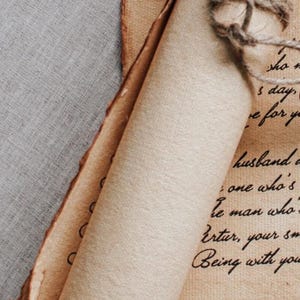 who
s day,
e for y
husband a
one who's
he man who
Artur, your sm
Being with you